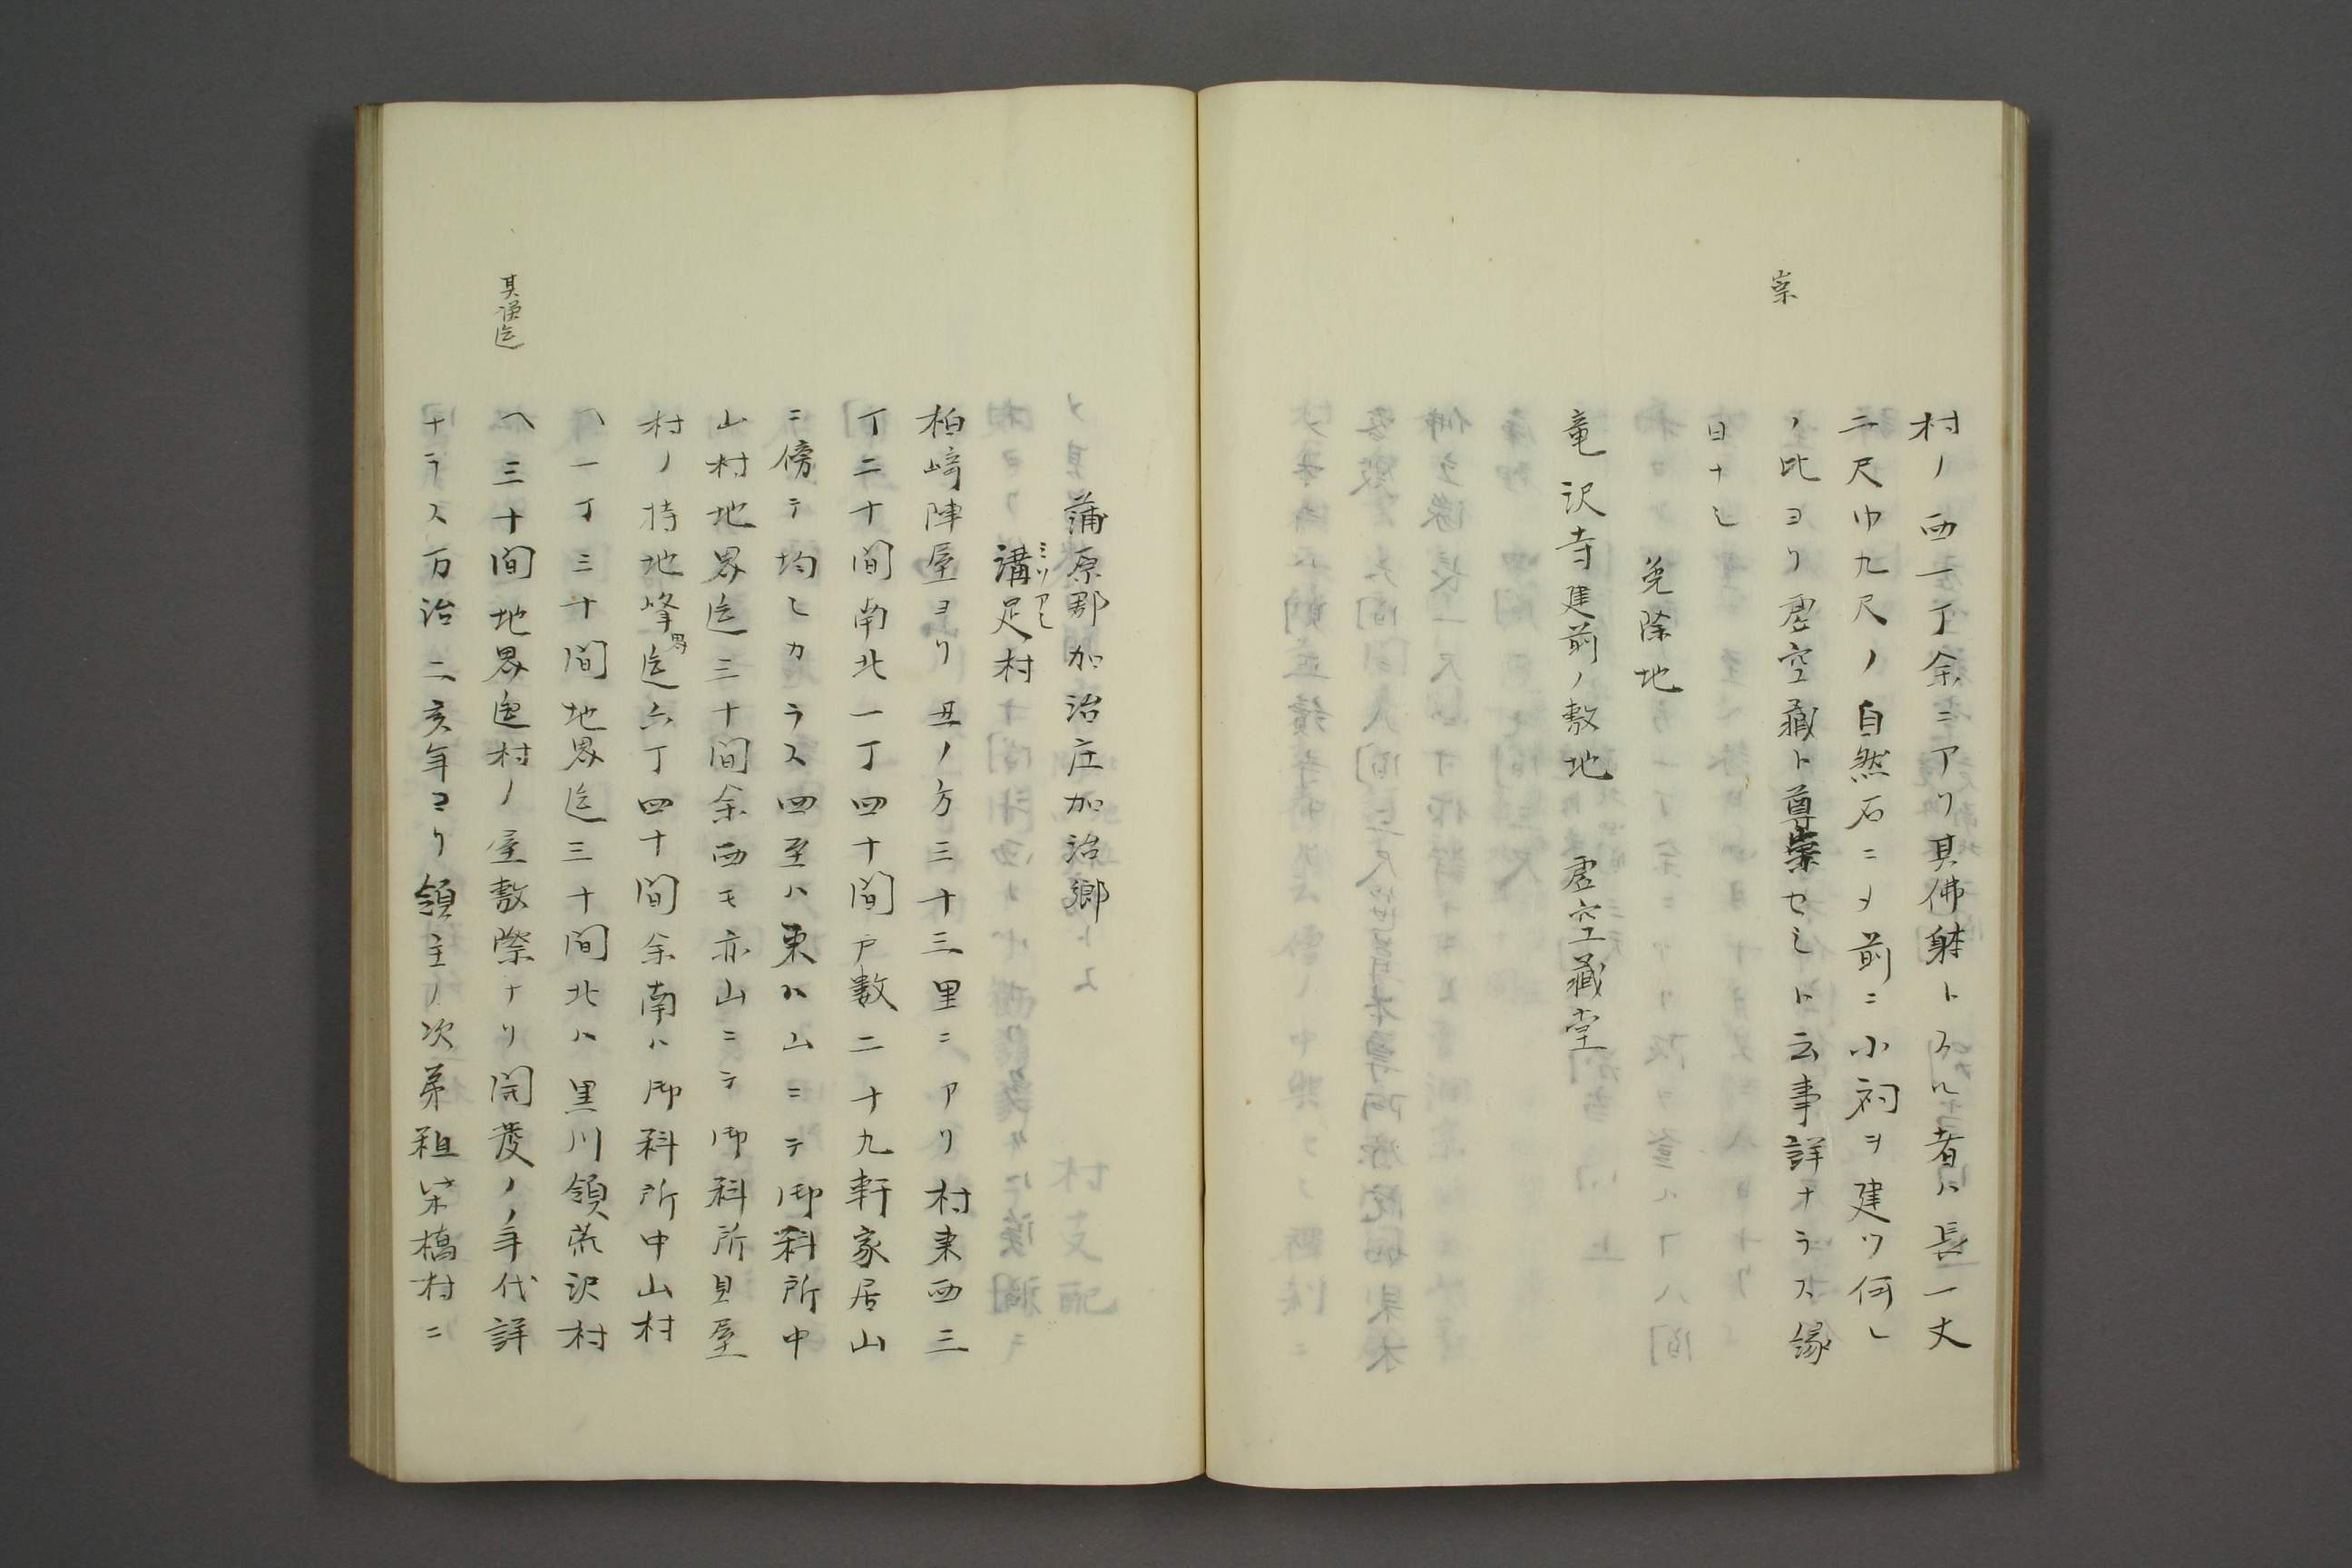 崇
村ノ西一丁余ニアリ其佛躰トスル者ハ長一丈
二尺巾九尺ノ自然石ニメ前ニ小祠ヲ建ツ何レ
ノ比ヨリ虚空藏ト尊崇セシト云事詳ナラス縁
日ナシ
免除地
竜沢寺建前ノ敷地 虚空藏堂
蒲原郡加治庄加治郷
溝足村
ミソアシ
柏﨑陣屋ヨリ丑ノ方三十三里ニアリ村東西三
丁二十間南北一丁四十間戸数二十九軒家居山
ニ傍テ均シカラス四至ハ東ハ山ニテ御料所中
山村地界迄三十間余西モ亦山ニテ御料所貝屋
村ノ持地峰界迄六丁四十間余南ハ御料所中山村
ヘ一丁三十間地界迄三十間北ハ黒川領荒沢村
ヘ三十間地界迄村ノ屋敷際ナリ開發ノ年代詳
ナラス万治二亥年ヨリ領主ノ次第租米橋村ニ